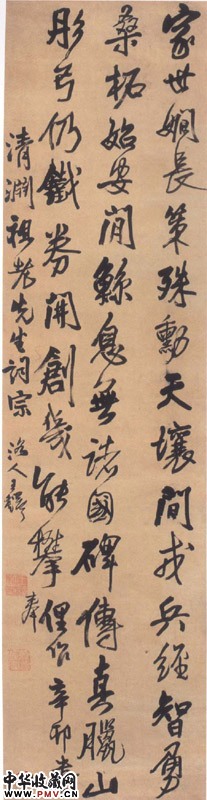 家世嫻長策殊勳天壤間戎兵經智勇
桑柘始安閒鯨息無諸國碑傳真臘山
彤弓仍鐵券開創幾能攀俚作辛卯書
奉
清淵祖老先生詞宗 洛人王鐸
中华收藏网
www.PMV.cOm.CN